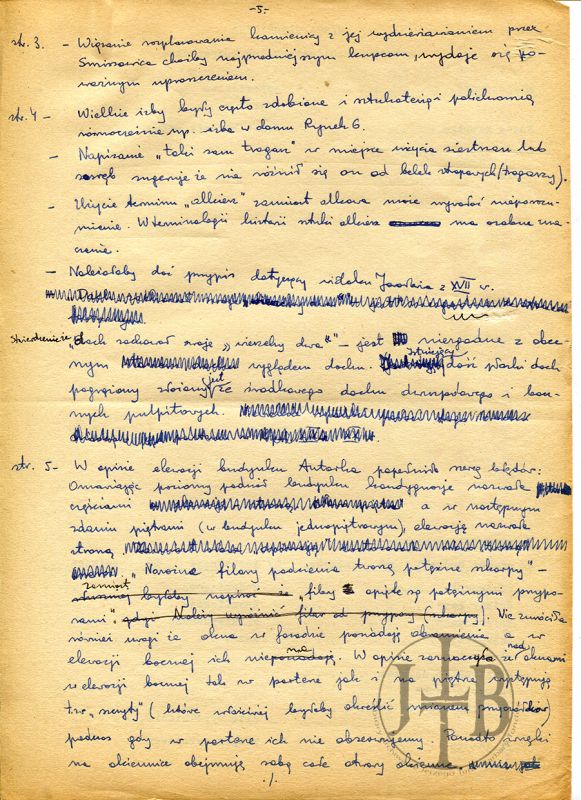 -5-
str. 3. - Wiązanie rozplanowania kamienicy z jej wydzierżawianiem przez
Smiszowica choćby najprzedniejszym kupcom, wydaje się po-
ważnym uproszczeniem.
str. 4 - Wielkie izby były często zdobione i sztukaterią i polichromią
równocześnie np. izba w domu Rynek 6.
- Napisanie "taki sam tragarz" w miejsce użycia siestrzan lub
sosręb sugeruje że nie różnił się on od belek stropowych/tragarzy).
- Użycie terminu "alkierz" zamiast alkowa może wywołać nieporozu-
mienie. W terminologii historii sztuki alkierz ma osobne zna-
czenie.
- Należałoby dać przypis dotyczący widoku Jarosławia z XVII w.
Stwierdzenie że "dach zachował swoje "wierzchy dwa"" - jest niezgodne z obec-
nym wyglądem dachu. Istniejący dość płaski dach
pogrążony złożony jest ze środkowego dachu dwuspadowego i bocz-
nych pulpitowych.
str. 5 - W opisie elewacji budynku Autorka popełniła szereg błędów:
Omawiając poziomy podział budynku kondygnacje nazwała
częściami a w następnym
zdaniu piętrami (w budynku jednopiętrowym), elewację nazwała
stroną. "Narożne filary podcienia tworzą potężne skarpy" -
zamiast "filary opięte są potężnymi przypo-
rami". Nie zwróciła
również uwagi że okna w fasadzie posiadają obramienia a w
elewacji bocznej ich nie ma. W opisie zaznaczyła że nad oknami
w elewacji bocznej tak w parterze jak i na piętrze występują
t.zw. "szczyty" (które właściwiej byłoby określić mianem przyczółków)
podczas gdy w parterze ich nie obserwujemy. Ponadto wnęki
na okiennice obejmują sobą całe otwory okienne
./.